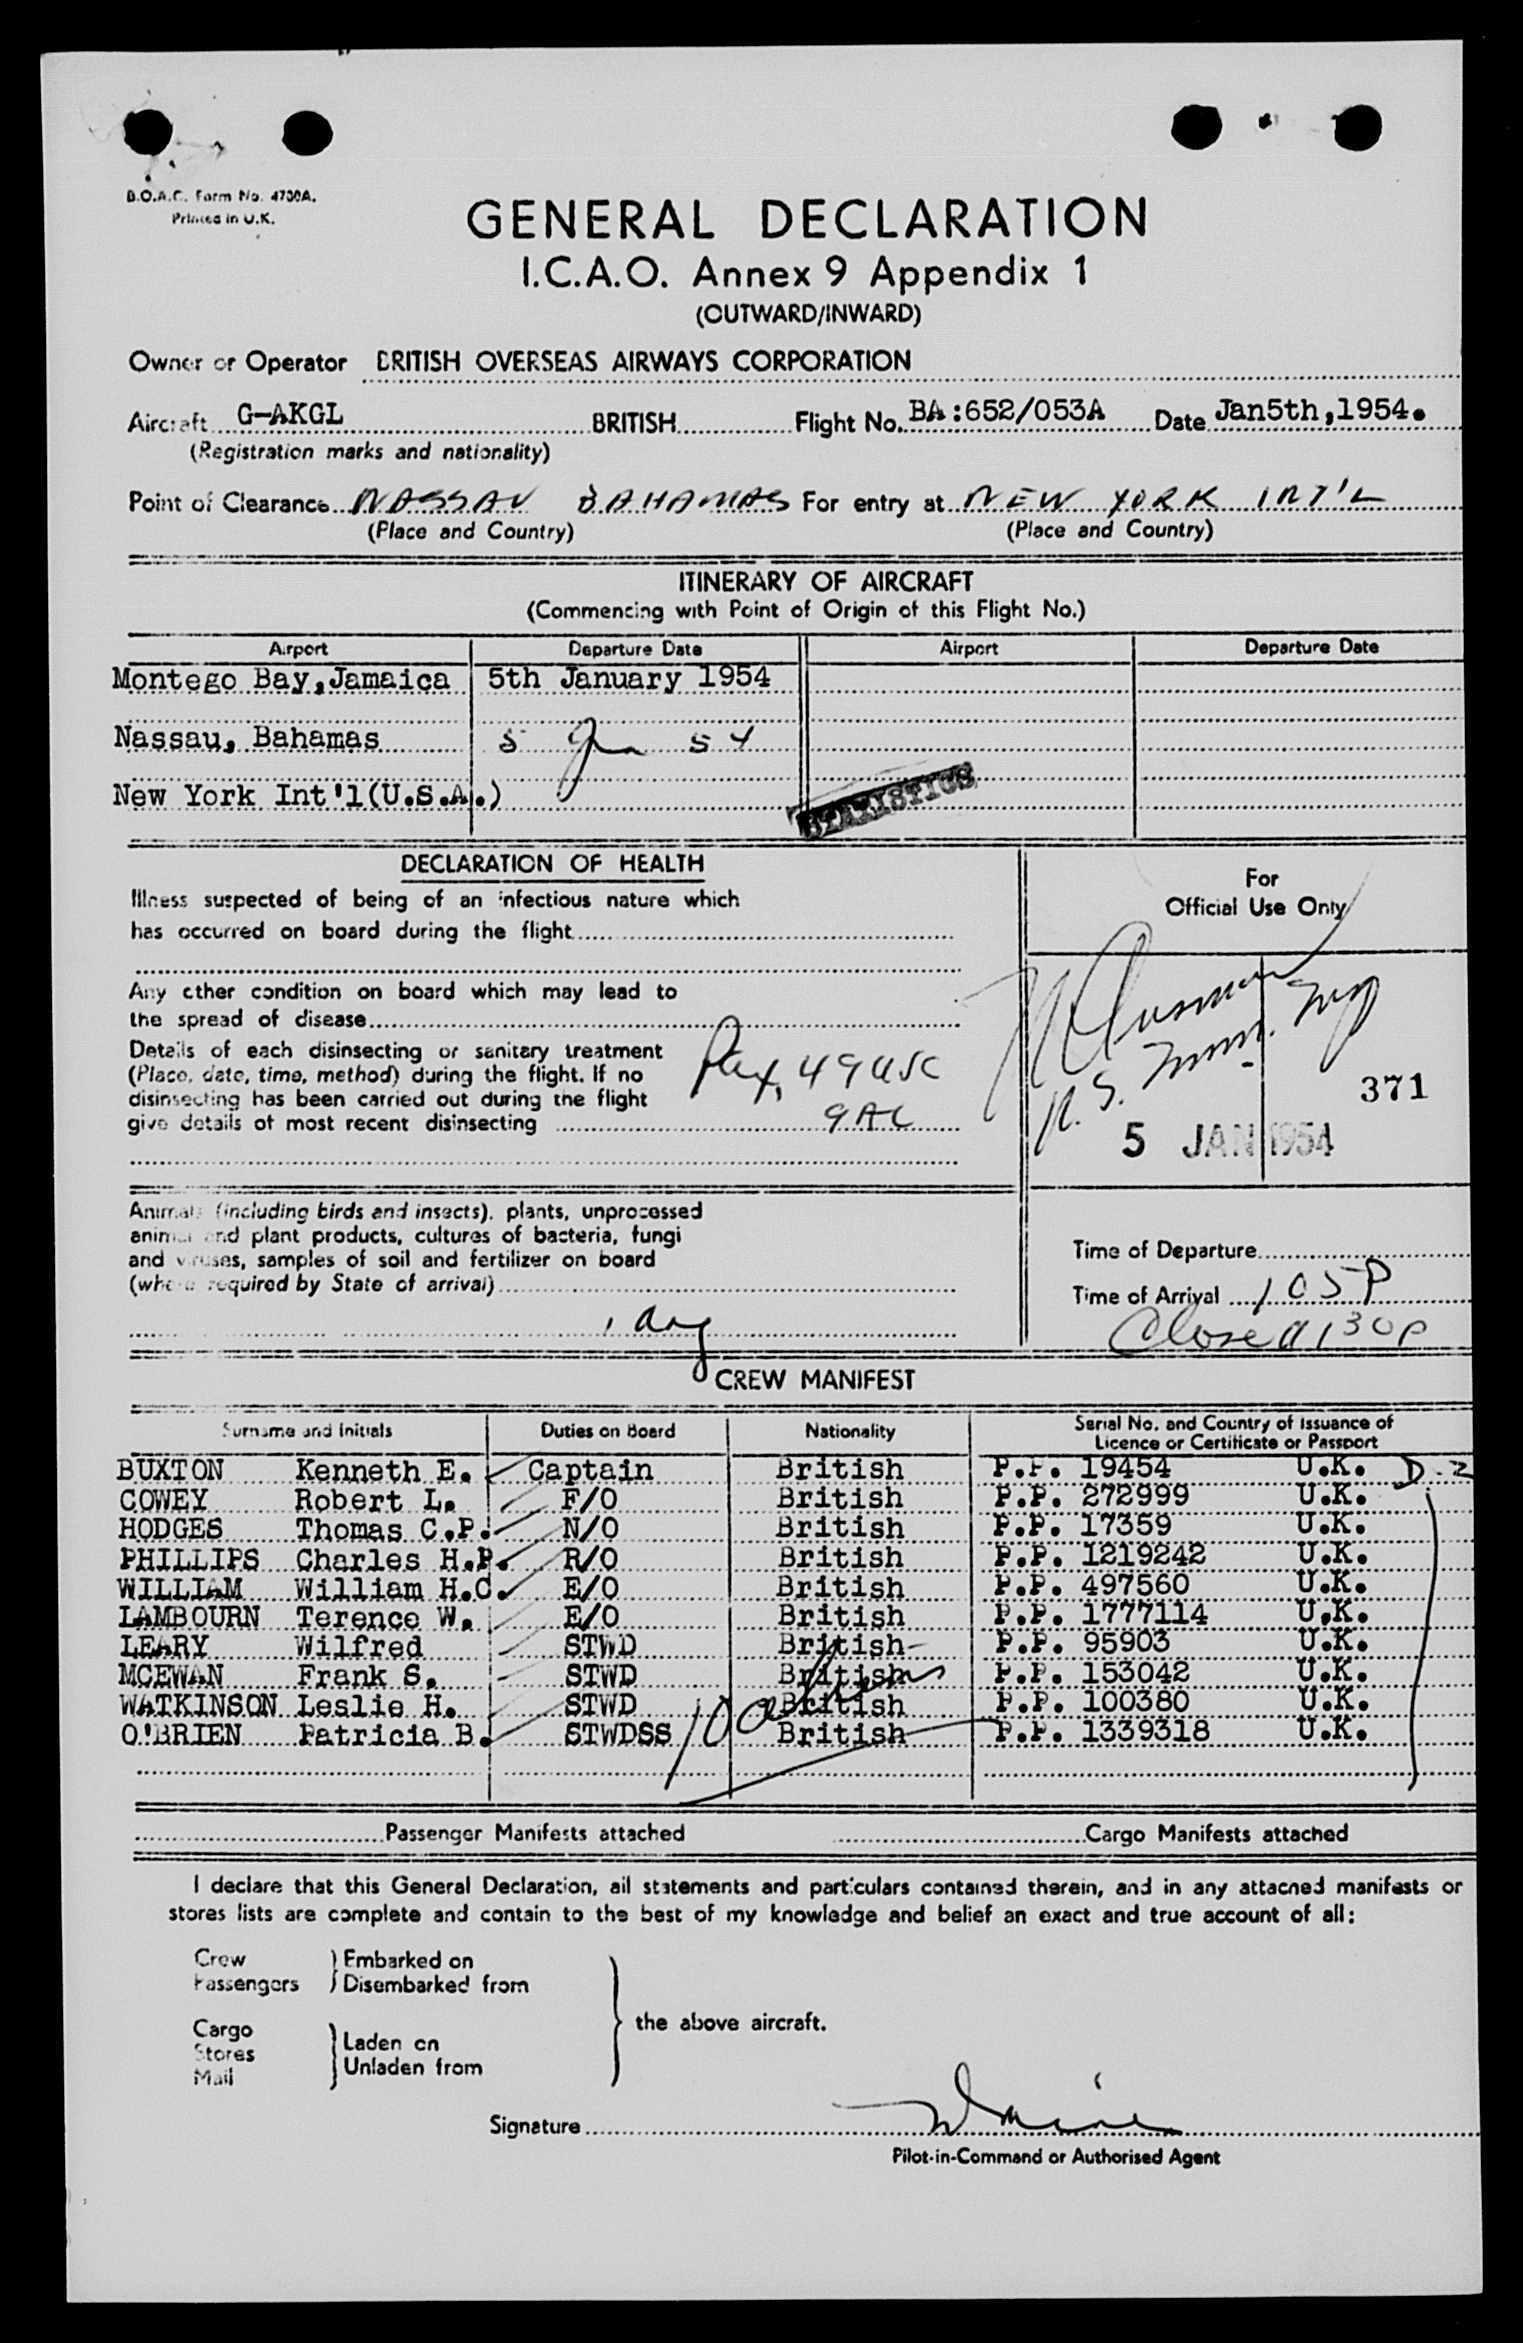 B.O.A.C. Form No. 4700A.
Printed in U.K.
GENERAL DECLARATION
I.C.A.O. Annex 9 Appendix 1
(OUTWARD/INWARD)
Owner or Operator BRITISH OVERSEAS AIRWAYS CORPORATION
Aircraft G-AKGL BRITISH Flight No. BA:652/053A Date Jan5th,1954.
(Registration marks and nationality)
Point of Clearance NASSAU BAHAMAS For entry at NEW YORK INT'L
(Place and Country) (Place and Country)
ITINERARY OF AIRCRAFT
(Commencing with Point of Origin of this Flight No.)
Airport Departure Date Airport Departure Date
Montego Bay,Jamaica 5th January 1954
Nassau, Bahamas 5 Jan 54
New York Int'l(U.S.A.)
STATISTICS
DECLARATION OF HEALTH
Illness suspected of being of an infectious nature which
has occurred on board during the flight
Any other condition on board which may lead to
the spread of disease
Details of each disinsecting or sanitary treatment
(Place, date, time, method) during the flight. If no
disinsecting has been carried out during the flight
give details of most recent disinsecting
Pax, 49 USC
9 AC
For
Official Use Only
U.S. Imm. Insp
371
5 JAN 1954
Animals (including birds and insects), plants, unprocessed
animal and plant products, cultures of bacteria, fungi
and viruses, samples of soil and fertilizer on board
(where required by State of arrival)
1 dog
Time of Departure
Time of Arrival 1 05 P
Closed 1 30 P
CREW MANIFEST
Surname and Initials Duties on Board Nationality Serial No. and Country of Issuance of Licence or Certificate or Passport
BUXTON Kenneth E. Captain British P.P. 19454 U.K. D-2
COWEY Robert L. F/O British P.P. 272999 U.K.
HODGES Thomas C.P. N/O British P.P. 17359 U.K.
PHILLIPS Charles H.P. R/O British P.P. 1219242 U.K.
WILLIAM William H.C. E/O British P.P. 497560 U.K.
LAMBOURN Terence W. E/O British P.P. 1777114 U.K.
LEARY Wilfred STWD British P.P. 95903 U.K.
MCEWAN Frank S. STWD British P.P. 153042 U.K.
WATKINSON Leslie H. STWD British P.P. 100380 U.K.
O'BRIEN Patricia B. STWDSS British P.P. 1339318 U.K.
10 aliens
Passenger Manifests attached Cargo Manifests attached
I declare that this General Declaration, all statements and particulars contained therein, and in any attached manifests or
stores lists are complete and contain to the best of my knowledge and belief an exact and true account of all:
Crew
Passengers
Embarked on
Disembarked from
Cargo
Stores
Mail
Laden on
Unladen from
the above aircraft.
Signature
Pilot-in-Command or Authorised Agent